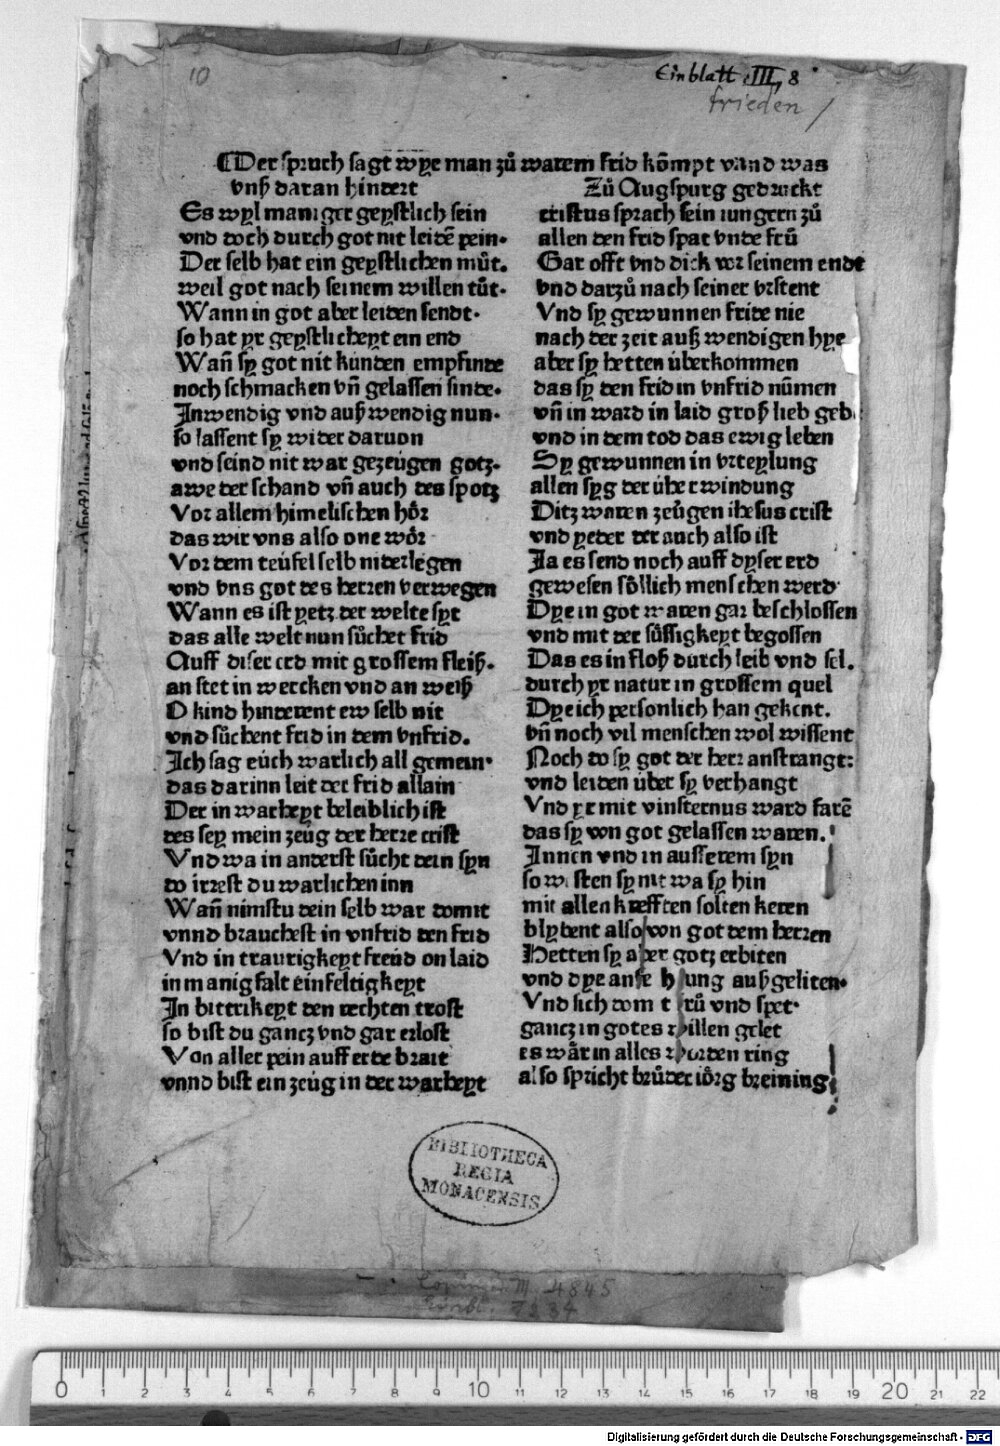 10
Einblatt III, 8
frieden /
¶Der spruch sagt wye man zů warem frid kõmpt vnnd was
vnß daran hindert Zů Augspurg gedruckt
Es wyl maniger geystlich sein
vnd doch durch got nit leidē pein.
Der selb hat ein geystlichen můt.
weil got nach seinem willen tůt.
Wann in got aber leiden sendt.
so hat yr geystlicheyt ein end
Wañ sy got nit kunden empfinde
noch schmacken vñ gelassen sinde.
Inwendig vnd außwendig nun.
so lassent sy wider daruon
vnd seind nit war gezeügen gotz.
awe der schand vñ auch des spotz
Vor allem himelischen hör
das wir vns also one wör
Vor dem teüfel selb niderlegen
vnd vns got des herren verwegen
Wann es ist yetz der welte syt
das alle welt nun sůchet frid
Auff diser erd mit grossem fleiß.
an stet in wercken vnd an weiß
O kind hinderent ew selb nit
vnd sůchent frid in dem vnfrid.
Ich sag eüch warlich all gemein.
das darinn leit der frid allain
Der in warheyt beleiblich ist
des sey mein zeüg der herre crist
Vnd wa in anderst sůcht dein syn
do irrest du warlichen inn
Wañ nimstu dein selb war domit
vnnd brauchest in vnfrid den frid
Vnd in traurigkeyt freüd on laid
in manigfalt einfeltigkeyt
In bitterkeyt den rechten trost
so bist du gancz vnd gar erlost
Von aller pein auff erde brait
vnnd bist ein zeüg in der warheyt
cristus sprach sein iungern zů
allen den frid spat vnde frů
Gar offt vnd dick vor seinem endt
vnd darzů nach seiner vrstent
Vnd sy gewunnen fride nie
nach der zeit auß wendigen hye
aber sy hetten überkommen
das sy den frid in vnfrid nůmen
vñ in ward in laid groß lieb geb
vnd in dem tod das ewig leben
Sy gewunnen in vrteylung
allen syg der überwindung
Ditz waren zeügen ihesus crist
vnd yeder der auch also ist
Ja es send noch auff dyser erd
gewesen söllich menschen werd
Dye in got waren gar beschlossen
vnd mit der süssigkeyt begossen
Das es in floß durch leib vnd sel.
durch yr natur in grossem quel
Dye ich personlich han gekent.
vñ noch vil menschen wol wissent
Noch do sy got der herr anstrangt:
vnd leiden über sy verhangt
Vnd yr mit vinsternus ward farē
das sy von got gelassen waren.
Innen vnd in ausserem syn
so wisten sy nit wa sy hin
mit allen krefften solten keren
blybent also von got dem herren
Hetten sy aber gotz erbiten
vnd dye anfechtung außgeliten.
Vnd sich dom t frů vnd spet.
gancz in gotes willen gelet
es wår in alles worden ring
also spricht brůder iörg breining
BIBLIOTHECA
REGIA
MONACENSIS
Copinger III. 4845
Einbl. 7234
0 1 2 3 4 5 6 7 8 9 10 11 12 13 14 15 16 17 18 19 20 21 22
Digitalisierung gefördert durch die Deutsche Forschungsgemeinschaft - DFG